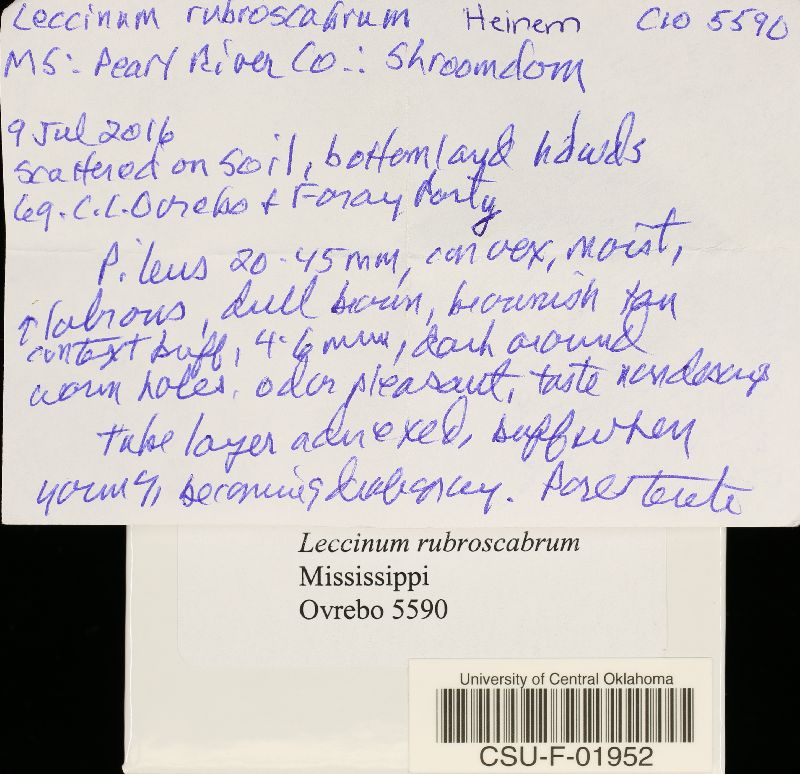 Leccinum rubroscabrum Heinem CLO 5590
MS: Pearl River Co.: Shroomdom
9 Jul 2016
scattered on soil, bottomland hdwds
Leg. C.L. Ovrebo & Foray Party
Pileus 20-45mm, convex, moist,
glabrous, dull brown, brownish tan
context buff, 4-6 mm, dark around
worm holes. odor pleasant, taste
tube layer adnexed, buff when
young, becoming gray. Pores
Leccinum rubroscabrum
Mississippi
Ovrebo 5590
University of Central Oklahoma
CSU-F-01952